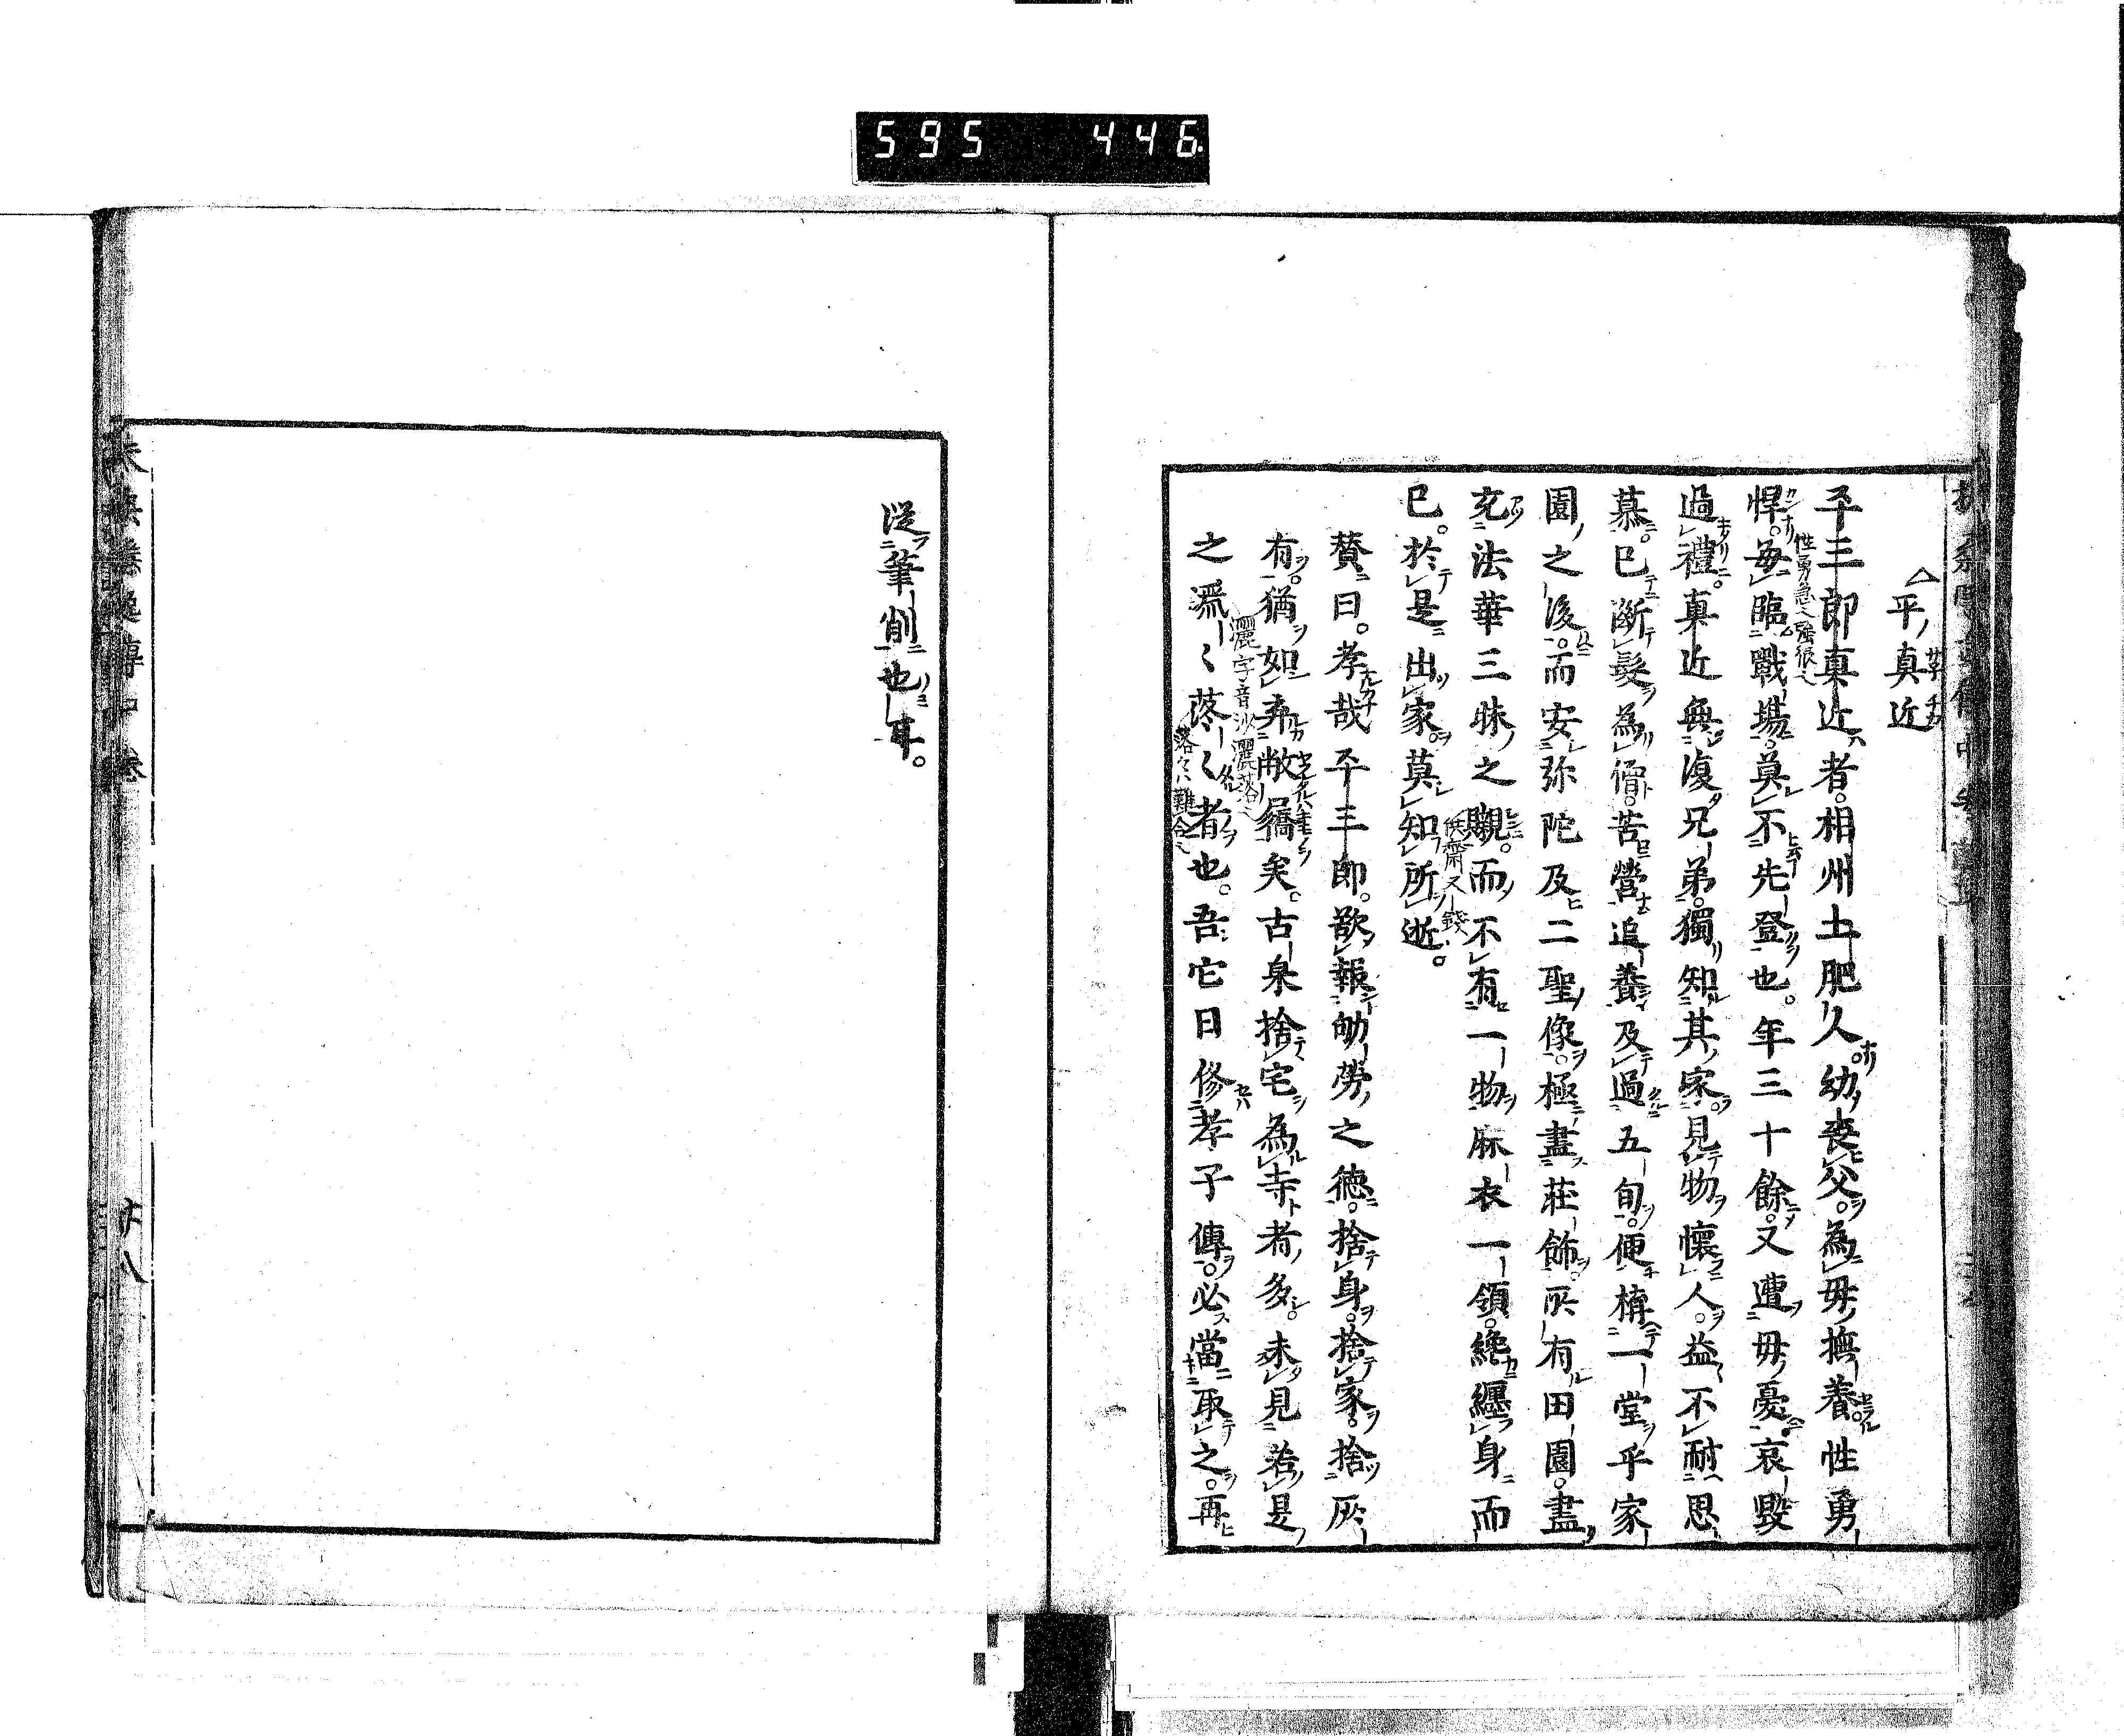 595 446
平真近
平三郎真近者。相州土肥人。幼喪父。為母撫養性勇
悍。毎臨戰場。莫不先登也。年三十餘。又遭母憂。哀毀
過禮。真近無復兄弟。獨知其家。見物懷人。益不耐思
慕。已斷髮為僧。苦營追養及過五旬。便構一堂乎家
園之後。而安弥陀及二聖像。極盡莊飾。所有田園。盡
充法華三昧之䞋。而不有一物。麻衣一領。纔纏身而
已。於是出家莫知所逝。
賛曰。孝哉平三郎。欲報劬勞之德。捨身。捨家。捨所
有。猶如弃敝屩矣。古泉捨宅為寺者多。未見若是
之灑〻落〻者也。吾它日修孝子傳。必當取之。再
從筆削也耳。